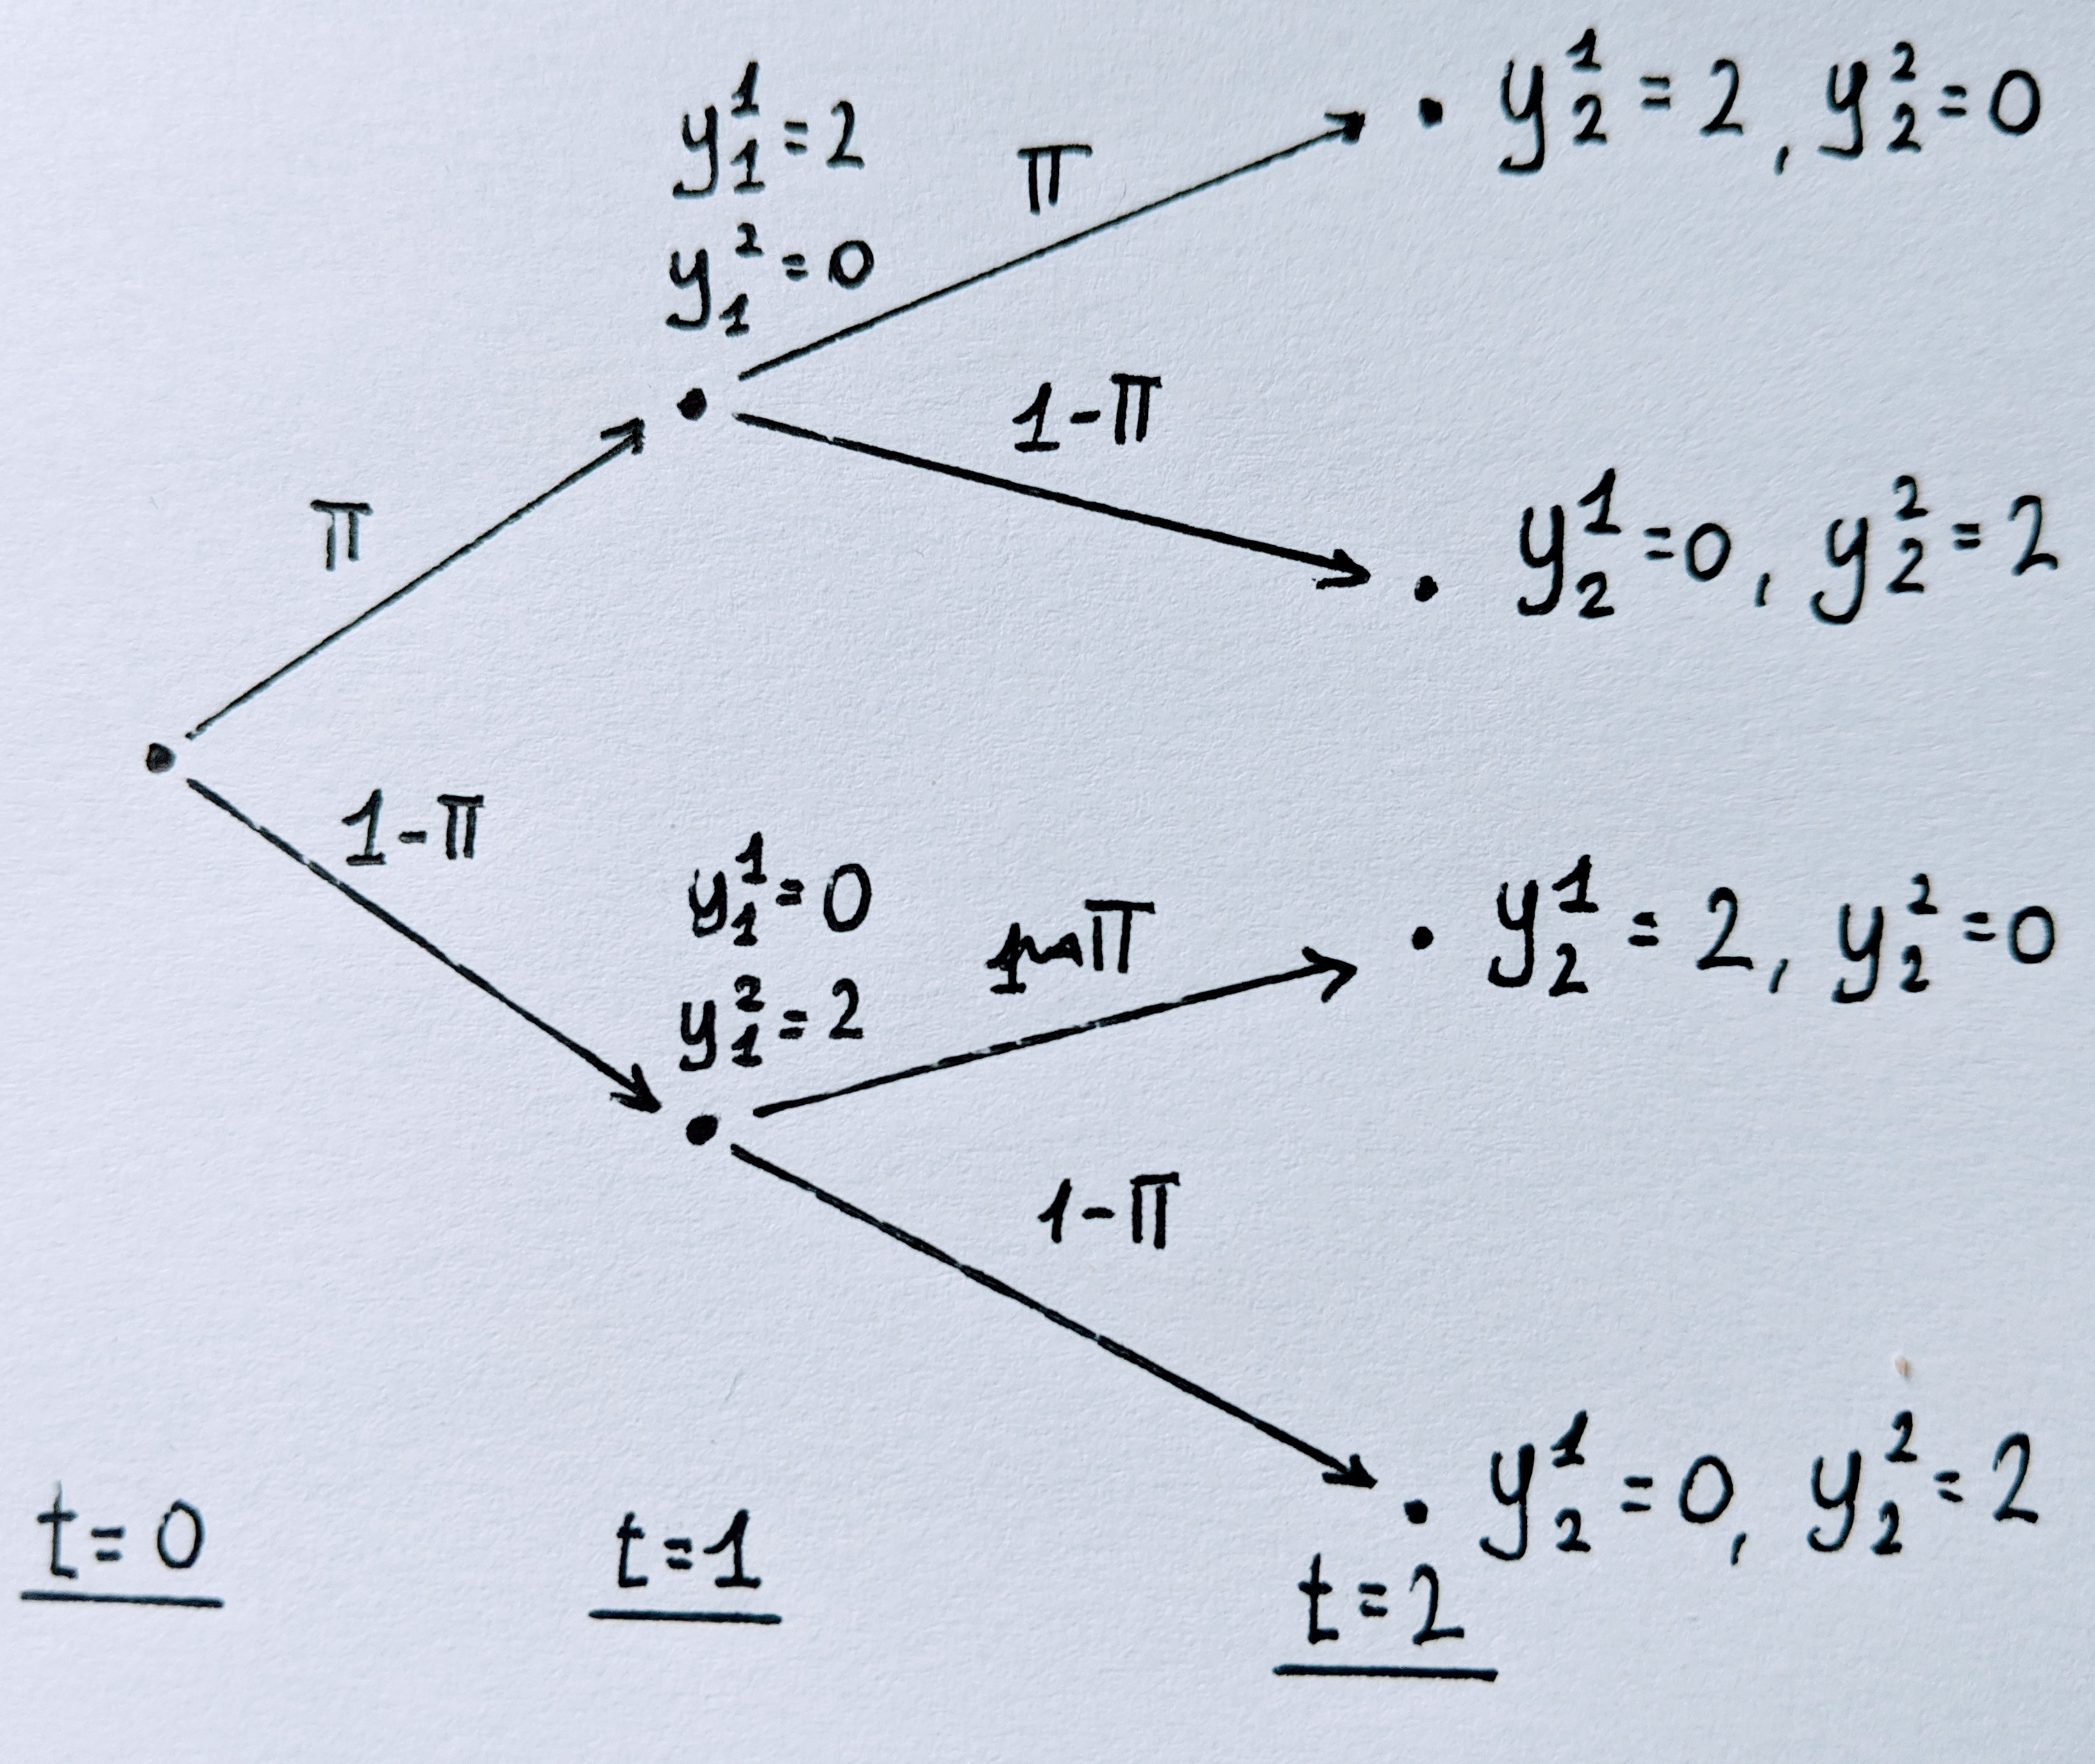 y₁¹ = 2
y₁² = 0
π
1-π
π
1-π
y₂¹ = 2, y₂² = 0
y₂¹ = 0, y₂² = 2
y₁¹ = 0
y₁² = 2
π
1-π
y₂¹ = 2, y₂² = 0
y₂¹ = 0, y₂² = 2
t = 0
t = 1
t = 2